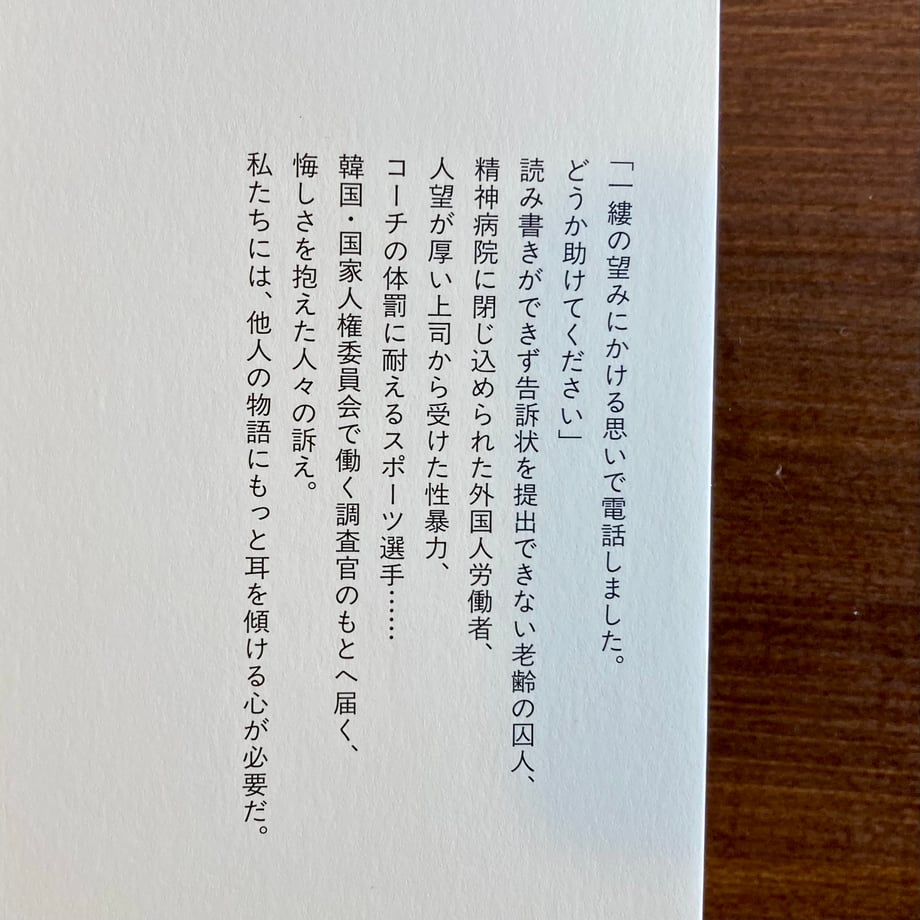 「一縷の望みにかける思いで電話しました。
どうか助けてください」
読み書きができず告訴状を提出できない老齢の囚人、
精神病院に閉じ込められた外国人労働者、
人望が厚い上司から受けた性暴力、
コーチの体罰に耐えるスポーツ選手……
韓国・国家人権委員会で働く調査官のもとへ届く、
悔しさを抱えた人々の訴え。
私たちには、他人の物語にもっと耳を傾ける心が必要だ。